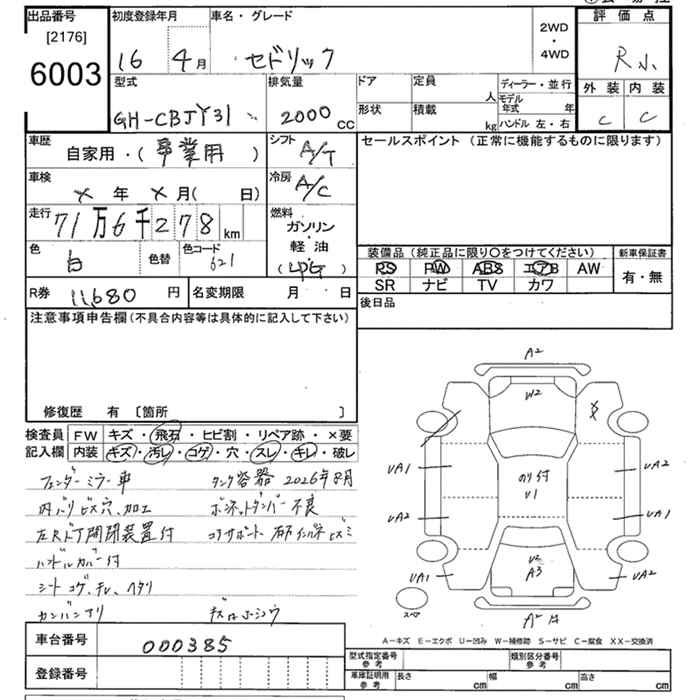 出品番号
[2176]
6003
初度登録年月
16 4月
車名・グレード
セドリック
2WD
・
4WD
評価点
R小
外装 内装
C C
型式
GH-CBJY31
排気量
2000 CC
ドア
定員
人
ディーラー・並行
モデル年式
年
形状
積載
kg
ハンドル 左・右
車歴
自家用・(事業用)
シフト
A/T
セールスポイント (正常に機能するものに限ります)
車検
×年×月( 日)
冷房
A/C
走行
71万6千278km
燃料
ガソリン
・
軽油
(LPG)
色
白
色替
色コード
621
装備品(純正品に限り〇をつけてください)
新車保証書
PS PW ABS エアB AW
有・無
SR ナビ TV カワ
R券 11,680 円
名変期限 月 日
後日品
注意事項申告欄(不具合内容等は具体的に記入して下さい)
修復歴 有 〔箇所 〕
検査員
記入欄
FW キズ・飛石・ヒビ割・リペア跡・×要
内装 キズ・汚レ・コゲ・穴・スレ・キレ・破レ
フェンダーミラー車
タンク容器 2026年8月
内バリビス穴、加工
ボンネットダンパー不良
左Rドア開閉装置付
ハンドルカバー付
シートコゲ、キレ、ヘタリ
車台番号
000385
登録番号
A2
W2
X
UA1
UA2
のり付
U1
UA2
UA1
U2
A3
UA1
UA2
スペア
A-キズ E-エクボ U-凹み W-補修跡 S-サビ C-腐食 XX-交換済
型式指定番号
参考
類別区分番号
参考
車庫証明用
参考
長さ cm
幅 cm
高さ cm